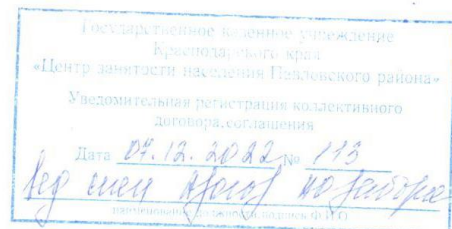 Государственное казенное учреждение
Краснодарского края
«Центр занятости населения Павловского района»
Уведомительная регистрация коллективного
договора,соглашения
Дата 07.12.2022 № 113
наименование должности, подпись Ф.И.О.